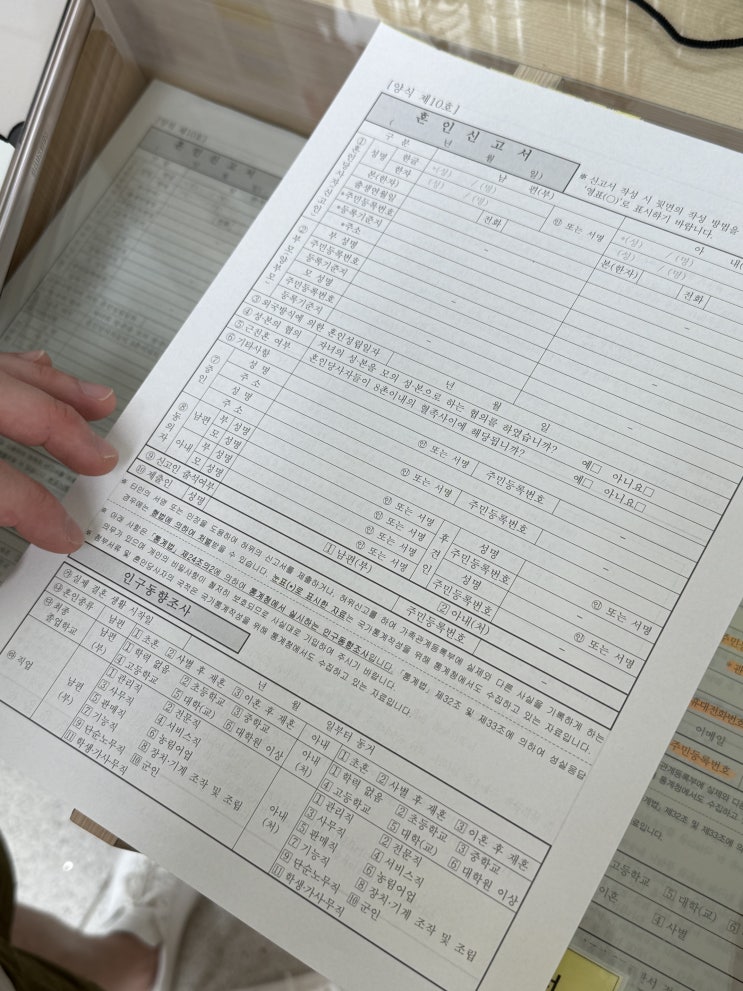 [양식 제10호]
혼 인 신 고 서
( 년 월 일)
※ 신고서 작성 시 뒷면의 작성 방법을
'영표(○)'로 표시하기 바랍니다.
구 분
남 편(부)
아 내(
① 혼인당사자(신고인)
성명
한글 *(성) / (명) ㊞ 또는 서명 *(성) / (명)
한자 (성) / (명) (성) / (명)
본(한자) 전화 본(한자) 전화
출생연월일
*주민등록번호 - -
*등록기준지
*주소
② 부모(양부모)
부 성명
주민등록번호 - -
등록기준지
모 성명
주민등록번호 - -
등록기준지
③ 외국방식에 의한 혼인성립일자 년 월 일
④ 성·본의 협의 자녀의 성·본을 모의 성·본으로 하는 협의를 하였습니까? 예□ 아니요□
⑤ 근친혼 여부 혼인당사자들이 8촌이내의 혈족사이에 해당됩니까? 예□ 아니요□
⑥ 기타사항
⑦ 증인
성 명 ㊞ 또는 서명 주민등록번호 -
주 소
성 명 ㊞ 또는 서명 주민등록번호 -
주 소
⑧ 동의자
남편 부 성명 ㊞ 또는 서명 후견인 성명 ㊞ 또는 서명
모 성명 ㊞ 또는 서명 주민등록번호
아내 부 성명 ㊞ 또는 서명 성명 ㊞ 또는 서명
모 성명 ㊞ 또는 서명 주민등록번호
⑨ 신고인 출석여부 ① 남편(부) ② 아내(처)
⑩ 제출인 성명 주민등록번호 -
※ 타인의 서명 또는 인장을 도용하여 허위의 신고서를 제출하거나, 허위신고를 하여 가족관계등록부에 실제와 다른 사실을 기록하게 하는
경우에는 형법에 의하여 처벌받을 수 있습니다. 눈표(*)로 표시한 자료는 국가통계작성을 위해 통계청에서도 수집하고 있는 자료입니다.
※ 아래 사항은 「통계법」 제24조의2에 의하여 통계청에서 실시하는 인구동향조사입니다. 「통계법」 제32조 및 제33조에 의하여 성실응답
의무가 있으며 개인의 비밀사항이 철저히 보호되므로 사실대로 기입하여 주시기 바랍니다.
※ 첨부서류 및 혼인당사자의 국적은 국가통계작성을 위해 통계청에서도 수집하고 있는 자료입니다.
인구동향조사
⑪ 실제 결혼 생활 시작일 년 월 일부터 동거
⑫ 혼인종류 남편(부) ① 초혼 ② 사별 후 재혼 ③ 이혼 후 재혼 아내(처) ① 초혼 ② 사별 후 재혼 ③ 이혼 후 재혼
⑬ 최종 졸업학교 남편(부) ① 학력 없음 ② 초등학교 ③ 중학교 아내(처) ① 학력 없음 ② 초등학교 ③ 중학교
④ 고등학교 ⑤ 대학(교) ⑥ 대학원 이상 ④ 고등학교 ⑤ 대학(교) ⑥ 대학원 이상
⑭ 직업 남편(부) ① 관리직 ② 전문직 아내(처) ① 관리직 ② 전문직
③ 사무직 ④ 서비스직 ③ 사무직 ④ 서비스직
⑤ 판매직 ⑥ 농림어업 ⑤ 판매직 ⑥ 농림어업
⑦ 기능직 ⑧ 장치·기계 조작 및 조립 ⑦ 기능직 ⑧ 장치·기계 조작 및 조립
⑨ 단순노무직 ⑩ 군인 ⑨ 단순노무직 ⑩ 군인
⑪ 학생·가사·무직 ⑪ 학생·가사·무직
[양식 제10호]
혼 인 신 고 서
이메일
주민등록번호
고등학교 ⑤ 대학(교) ⑥
이혼 ④ 사별